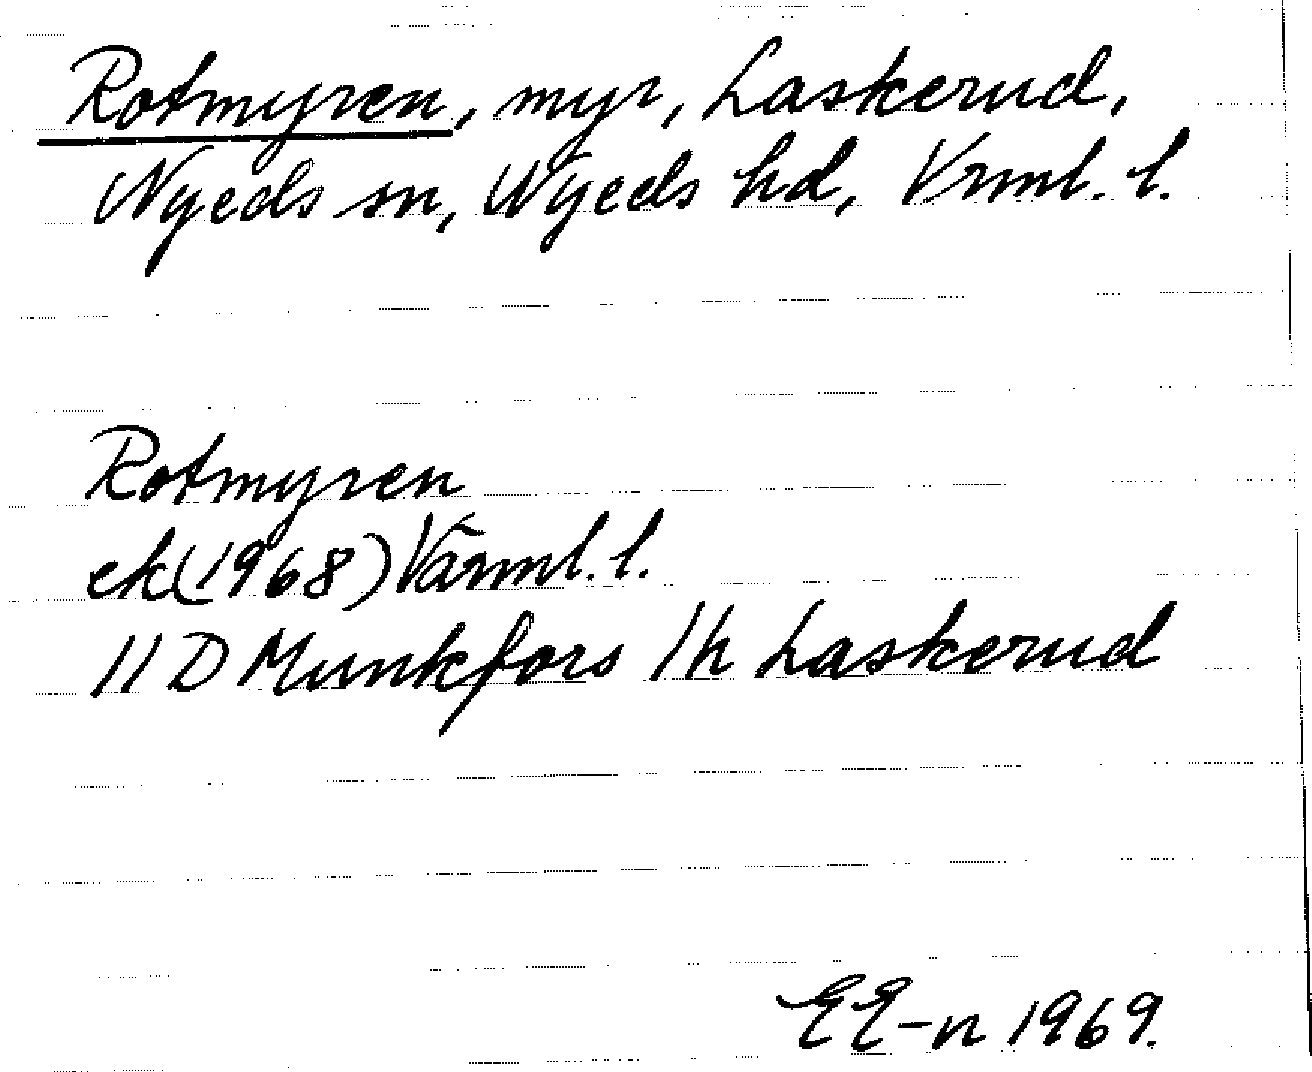 Rotmyren, myr, Laskerud,
Nyeds sn, Nyeds hd, Vrml. l.
Rotmyren
ek(1968) Värml. l.
11 D Munkfors 1h Laskerud
EE-n 1969.